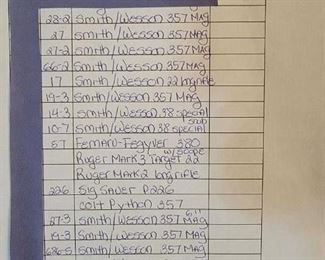 28-2 Smith/Wesson 357 MAG
27 Smith/Wesson 357 MAG
27-2 Smith/Wesson 357 MAG
66-2 Smith/Wesson 357 Mag
17 Smith/Wesson 22 longrifle
19-3 Smith/Wesson 357 MAG
14-3 Smith/Wesson .38 special
snub
10-7 Smith/Wesson 38 special
57 Femaru-Fegyver 380
w/scope
Ruger Mark 3 Target 22
Ruger Mark 2 long rifle
226 Sig Sauer P226
colt Python 357
6"
27-3 Smith/Wesson 357 MAG
19-3 Smith/Wesson 357 MAG
686-5 Smith/Wesson 357 MAG